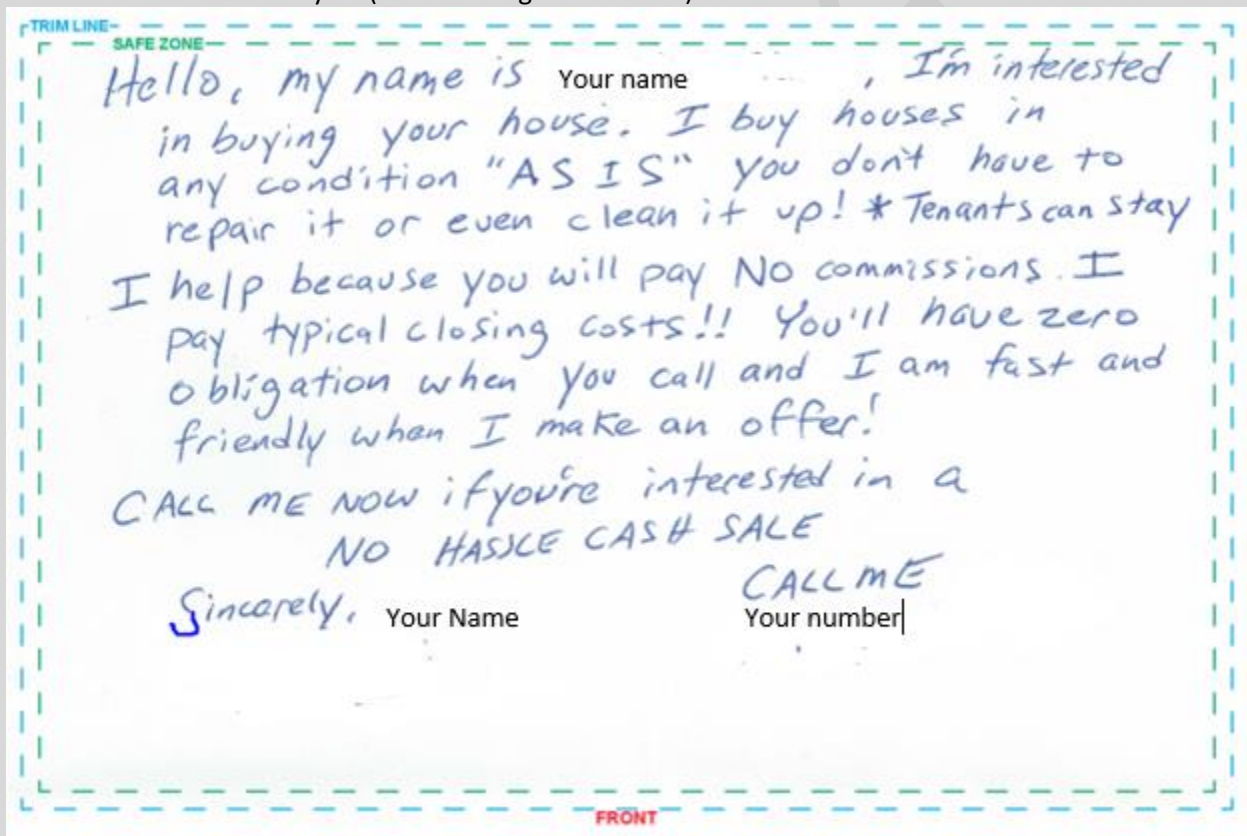 TRIM LINE
SAFE ZONE
Hello, my name is Your name , I'm interested
in buying your house. I buy houses in
any condition "AS IS" you don't have to
repair it or even clean it up! * Tenants can stay
I help because you will pay No commissions. I
pay typical closing costs!! You'll have zero
obligation when you call and I am fast and
friendly when I make an offer!
CALL ME NOW if you're interested in a
NO HASSLE CASH SALE
CALL ME
Sincerely, Your Name Your number
FRONT